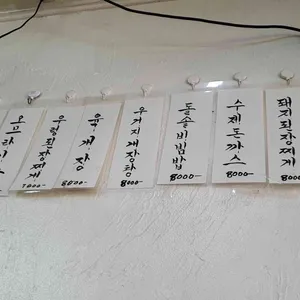 오므라이스
우렁된장찌개
7000-
육개장
8000-
우거지해장탕
8000-
돌솥비빔밥
8000-
수제돈까스
8000-
돼지된장찌개
8000-